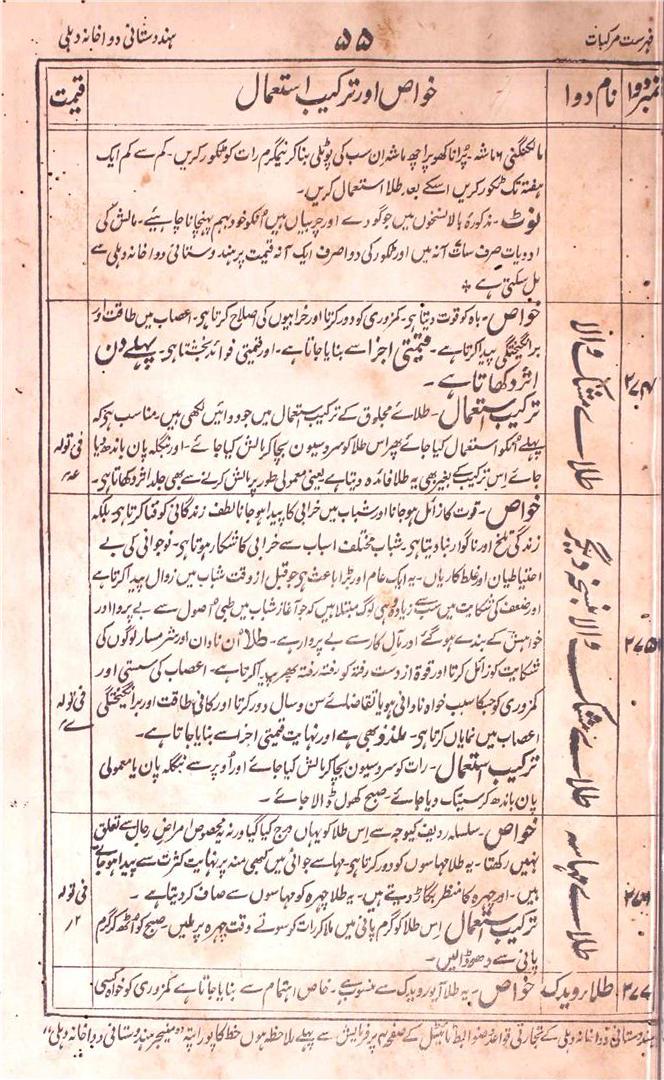 فہرست مرکبات
۵۵
ہندوستانی دواخانہ دہلی
نمبر دوا
نام دوا
خواص اور ترکیب استعمال
قیمت
مالکنگنی ۶ ماشہ۔ پرانا کھوپرا چھ ماشہ ان سب کی پوٹلی بنا کر نیمگرم رات کو ٹکور کریں۔ کم سے کم ایک
ہفتہ تک ٹکور کریں اسکے بعد طلا استعمال کریں۔
نوٹ۔ مذکورہ بالا نسخوں میں جو گودے اور چربیاں ہیں انکو خود بہم پہنچانا چاہیے۔ مالش کی
ادویات صرف سات آنہ میں اور ٹکور کی دوا صرف ایک آنہ قیمت پر ہندوستانی دواخانہ دہلی سے
مل سکتی ہے ٭
۲۷۴
طلائے مشک والا
خواص۔ باہ کو قوت دیتا ہو۔ کمزوری کو دور کرتا اور خرابیوں کی اصلاح کرتا ہو۔ اعصاب میں طاقت اور
برانگیختگی پیدا کرتا ہے۔ قیمتی اجزا سے بنایا جاتا ہے۔ اور قیمتی فوائد بخشتا ہو۔ پہلے دن
اثر دکھاتا ہے۔
ترکیب استعمال۔ طلائے مجلوق کے ترکیب استعمال میں جو دوائیں لکھی ہیں۔ مناسب ہو کہ
پہلے انکو استعمال کیا جائے پھر اس طلا کو سروسیون بچا کر مالش کیا جائے۔ اور بنگلہ پان باندھ دیا
جائے اس ترکیب کے بغیر بھی یہ طلا فائدہ دیتا ہے یعنی معمولی طور پر مالش کرنے سے بھی جلد اثر دکھاتا ہو۔
فی تولہ
۲۷۵
طلائے مشک والا بنسخہ دیگر
خواص۔ قوت کا زائل ہو جانا اور شباب میں خرابی کا پیدا ہو جانا لطف زندگانی کو فنا کرتا ہو بلکہ
زندگی تلخ اور ناگوار بنا دیتا ہو۔ شباب مختلف اسباب سے خرابی کا شکار ہوتا ہو۔ نوجوانی کی بے
احتیاطیان اور غلط کاریاں۔ یہ ایک عام اور بڑا باعث ہو جو قبل از وقت شباب میں زوال پیدا کرتا ہے
اور ضعف کی شکایت میں سب سے زیادہ وہی لوگ مبتلا ہیں کہ جو آغاز شباب میں طبی اصول سے بے پروا اور
خواہش کے بندے ہو گئے اور مآل کار سے بے پروا رہے۔ طلا ان نادان اور شرمسار لوگوں کی
شکایت کو زائل کرتا اور قوۃ از دست رفتہ کو رفتہ رفتہ پھر پیدا کرتا ہے۔ اعصاب کی سستی اور
کمزوری کو جسکا سبب خواہ نادانی ہو یا تقاضائے سن و سال دور کرتا اور کافی طاقت اور برانگیختگی
اعصاب میں نمایاں کرتا ہو۔ ملذذ بھی ہے اور نہایت قیمتی اجزا سے بنایا جاتا ہے۔
ترکیب استعمال۔ رات کو سروسیون بچا کر مالش کیا جائے اور اوپر سے بنگلہ پان یا معمولی
پان باندھ کر سینک دیا جائے۔ صبح کھول ڈالا جائے۔
فی تولہ
۲۷۶
طلائے مہاسہ
خواص۔ سلسلہ ردیف کیوجہ سے اس طلا کو یہاں درج کیا گیا ورنہ یہ مخصوص امراض رجال سے تعلق
نہیں رکھتا۔ یہ طلا مہاسوں کو دور کرتا ہو۔ مہاسے جوانی میں کبھی منہ پر نہایت کثرت سے پیدا ہو جاتے
ہیں۔ اور چہرہ کا منظر بگاڑ دیتے ہیں۔ یہ طلا چہرہ کو مہاسوں سے صاف کر دیتا ہے۔
ترکیب استعمال اس طلا کو گرم پانی میں ملا کر رات کو سوتے وقت چہرہ پر ملیں۔ صبح کو اٹھ کر گرم
پانی سے دھو ڈالیں۔
فی تولہ
۲/
۲۷۷
طلا ویدک
خواص۔ یہ طلا آیورویدک سے منسوب ہے۔ خاص اہتمام سے بنایا جاتا ہے کمزوری کو خواہ کیسی
ہندوستانی دواخانہ دہلی کے تجارتی قواعد و ضوابط ٹائیٹل کے صفحہ ۳ پر فرمایش سے پہلے ملاحظہ ہوں خط کا پورا پتہ "منیجر ہندوستانی دواخانہ دہلی"